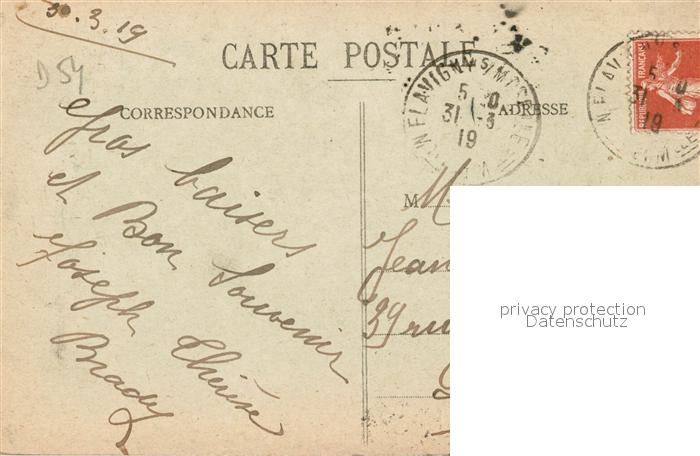 30.3.19
D 54
CARTE POSTALE
CORRESPONDANCE
ADRESSE
FLAVIGNY S/ MOSELLE
5 20
31 -3
19
FLAV
5 0
31
19
REPUBLIQUE FRANÇAISE
Gros baisers
et Bon Souvenir
Joseph Thérèse
M
Jean
39 ru
privacy protection
Datenschutz